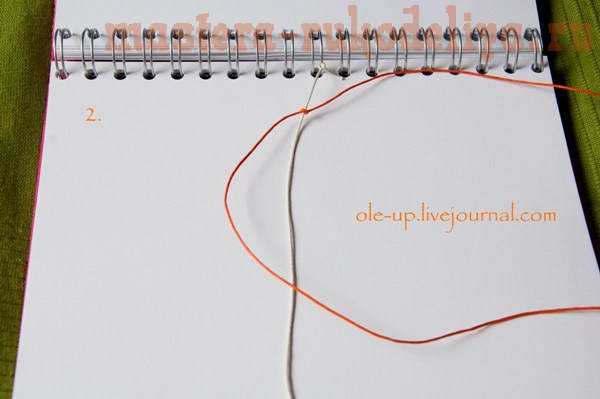 masterx rukodeling.ru
2.
ole-up.livejournal.com